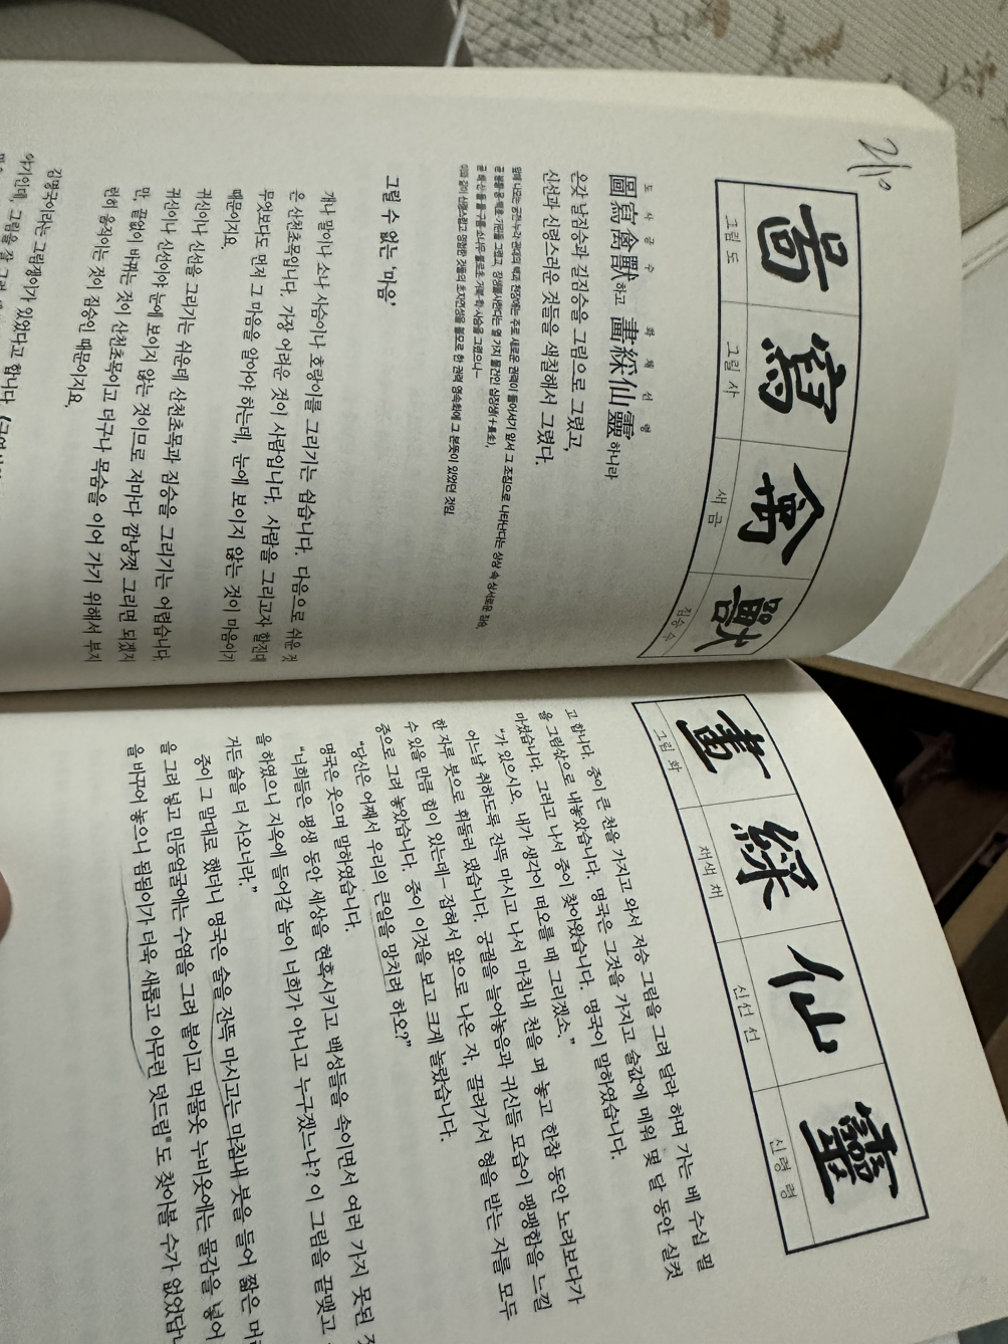 210
圖 寫 禽 獸
그림 도 그릴 사 새 금 짐승 수
도 사 금 수 화 채 선 령
圖寫禽獸하고 畵綵仙靈하니라
온갖 날짐승과 길짐승을 그림으로 그렸고,
신선과 신령스러운 것들을 색칠해서 그렸다.
앞에 나오는 궁전·누각·관대의 벽과 천장에는 주로 새로운 권력이 들어서기 앞서 그 조짐으로 나타난다는 상상 속 상서로운 짐승
곧 봉황·용·백호·기린을 그렸고, 장생불사한다는 열 가지 물건인 십장생(十長生),
곧 해·산·돌·물·구름·소나무·불로초·거북·학·사슴을 그렸으니—
이와 같이 신령스럽고 영원한 것들의 초자연성을 볼모로 한 권력 영속화에 그 본뜻이 있었던 것임.
그릴 수 없는 '마음'
개나 말이나 소나 사슴이나 호랑이를 그리기는 쉽습니다. 다음으로 쉬운 것
은 산천초목입니다. 가장 어려운 것이 사람입니다. 사람을 그리고자 할진대
무엇보다도 먼저 그 마음을 알아야 하는데, 눈에 보이지 않는 것이 마음이기
때문이지요.
귀신이나 신선을 그리기는 쉬운데 산천초목과 짐승을 그리기는 어렵습니다.
귀신이나 신선이야 눈에 보이지 않는 것이므로 저마다 깜냥껏 그리면 되겠지
만, 끝없이 바뀌는 것이 산천초목이고 더구나 목숨을 이어 가기 위해서 부지
런히 움직이는 것이 짐승인 때문이지요.
김명국이라는 그림쟁이가 있었다고 합니다.
야기인데, 그림을 잘 그려
畵 綵 仙 靈
그림 화 채색 채 신선 선 신령 령
고 합니다. 중이 큰 천을 가지고 와서 저승 그림을 그려 달라 하며 가는 베 수십 필
을 그림삯으로 내놓았습니다. 명국은 그것을 가지고 술값에 메워 몇 달 동안 실컷
마셨습니다. 그러고 나서 중이 찾아왔습니다. 명국이 말하였습니다.
"가 있으시오. 내가 생각이 떠오를 때 그리겠소."
어느날 취하도록 잔뜩 마시고 나서 마침내 천을 펴 놓고 한참 동안 노려보다가
한 자루 붓으로 휘둘러 댔습니다. 궁궐을 늘어놓음과 귀신들 모습이 팽팽함을 느낄
수 있을 만큼 힘이 있는데— 잡혀서 앞으로 나온 자, 끌려가서 형을 받는 자를 모두
중으로 그려 놓았습니다. 중이 이것을 보고 크게 놀랐습니다.
"당신은 어째서 우리의 큰일을 망치려 하오?"
명국은 웃으며 말하였습니다.
"너희들은 평생 동안 세상을 현혹시키고 백성들을 속이면서 여러 가지 못된 짓
을 하였으니 지옥에 들어갈 놈이 너희가 아니고 누구겠느냐? 이 그림을 끝맺고
거든 술을 더 사오너라."
중이 그 말대로 했더니 명국은 술을 잔뜩 마시고는 마침내 붓을 들어 짧은 머리
을 그려 넣고 민둥얼굴에는 수염을 그려 붙이고 먹물옷 누비옷에는 물감을 넣어
을 바꾸어 놓으니 됨됨이가 더욱 새롭고 아무런 덧드림*도 찾아볼 수가 없었답니